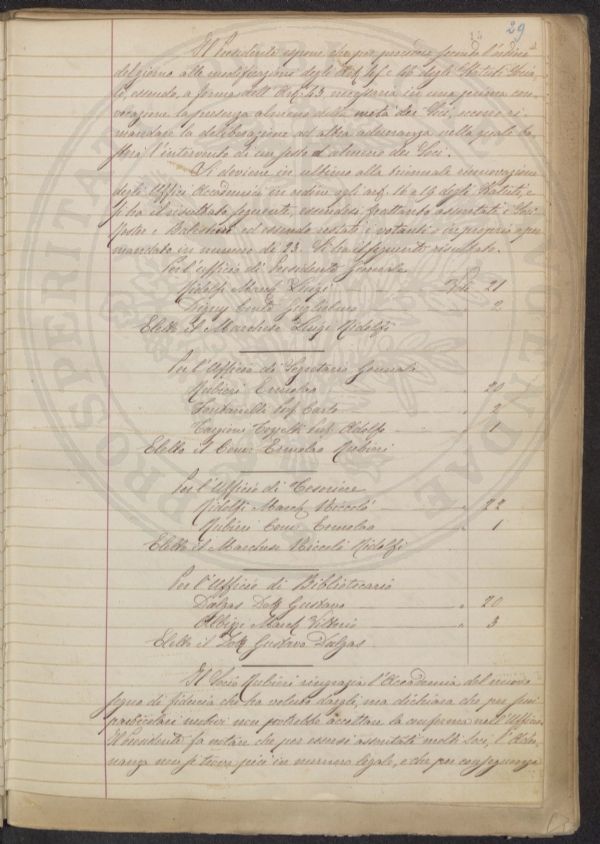 29
Il Presidente espone che per procedere secondo l'ordine
del giorno alle modificazioni degli Art. 45 e 46 degli Statuti Socia-
li, essendo, a forma dell'Art. 43, necessaria in una prima con-
vocazione la presenza almeno della metà dei Soci, occorre ri-
mandare la deliberazione ad altra adunanza nella quale ba-
sterà l'intervento di un sesto almeno dei Soci.
Si deviene in ultimo alla triennale rinnovazione
degli Uffici Accademici in ordine agli art. 16 e 19 degli Statuti, e
si ha il resultato seguente, essendosi frattanto assentati i Soci
e ed essendo restati i votanti in proprio o per
mandato in numero di 23. Si ha il seguente resultato.
Per l'ufficio di Presidente Generale
Ridolfi March. Luigi Voti 21
Digny Conte Guglielmo " 2
Eletto il Marchese Luigi Ridolfi
Per l'Ufficio di Segretario Generale
Rubieri Ermolao 20
Fontanelli Prof. Carlo " 2
Targioni Tozzetti Prof. Adolfo " 1
Eletto il Comm. Ermolao Rubieri
Per l'Ufficio di Tesoriere
Ridolfi March. Niccolò " 22
Rubieri Comm. Ermolao " 1
Eletto il Marchese Niccolò Ridolfi
Per l'Ufficio di Bibliotecario
Dalgas Dott. Gustavo " 20
Albizi March. Vittorio " 3
Eletto il Dott. Gustavo Dalgas
Il Socio Rubieri ringrazia l'Accademia del nuovo
segno di fiducia che ha voluto dargli, ma dichiara che per suoi
particolari motivi non potrebbe accettare la conferma nell'Ufficio.
Il Presidente fa notare che per essersi assentati molti Soci, l'Adu-
nanza non si trova più in numero legale, e che per conseguenza
PROSPERITATI AUGENDAE